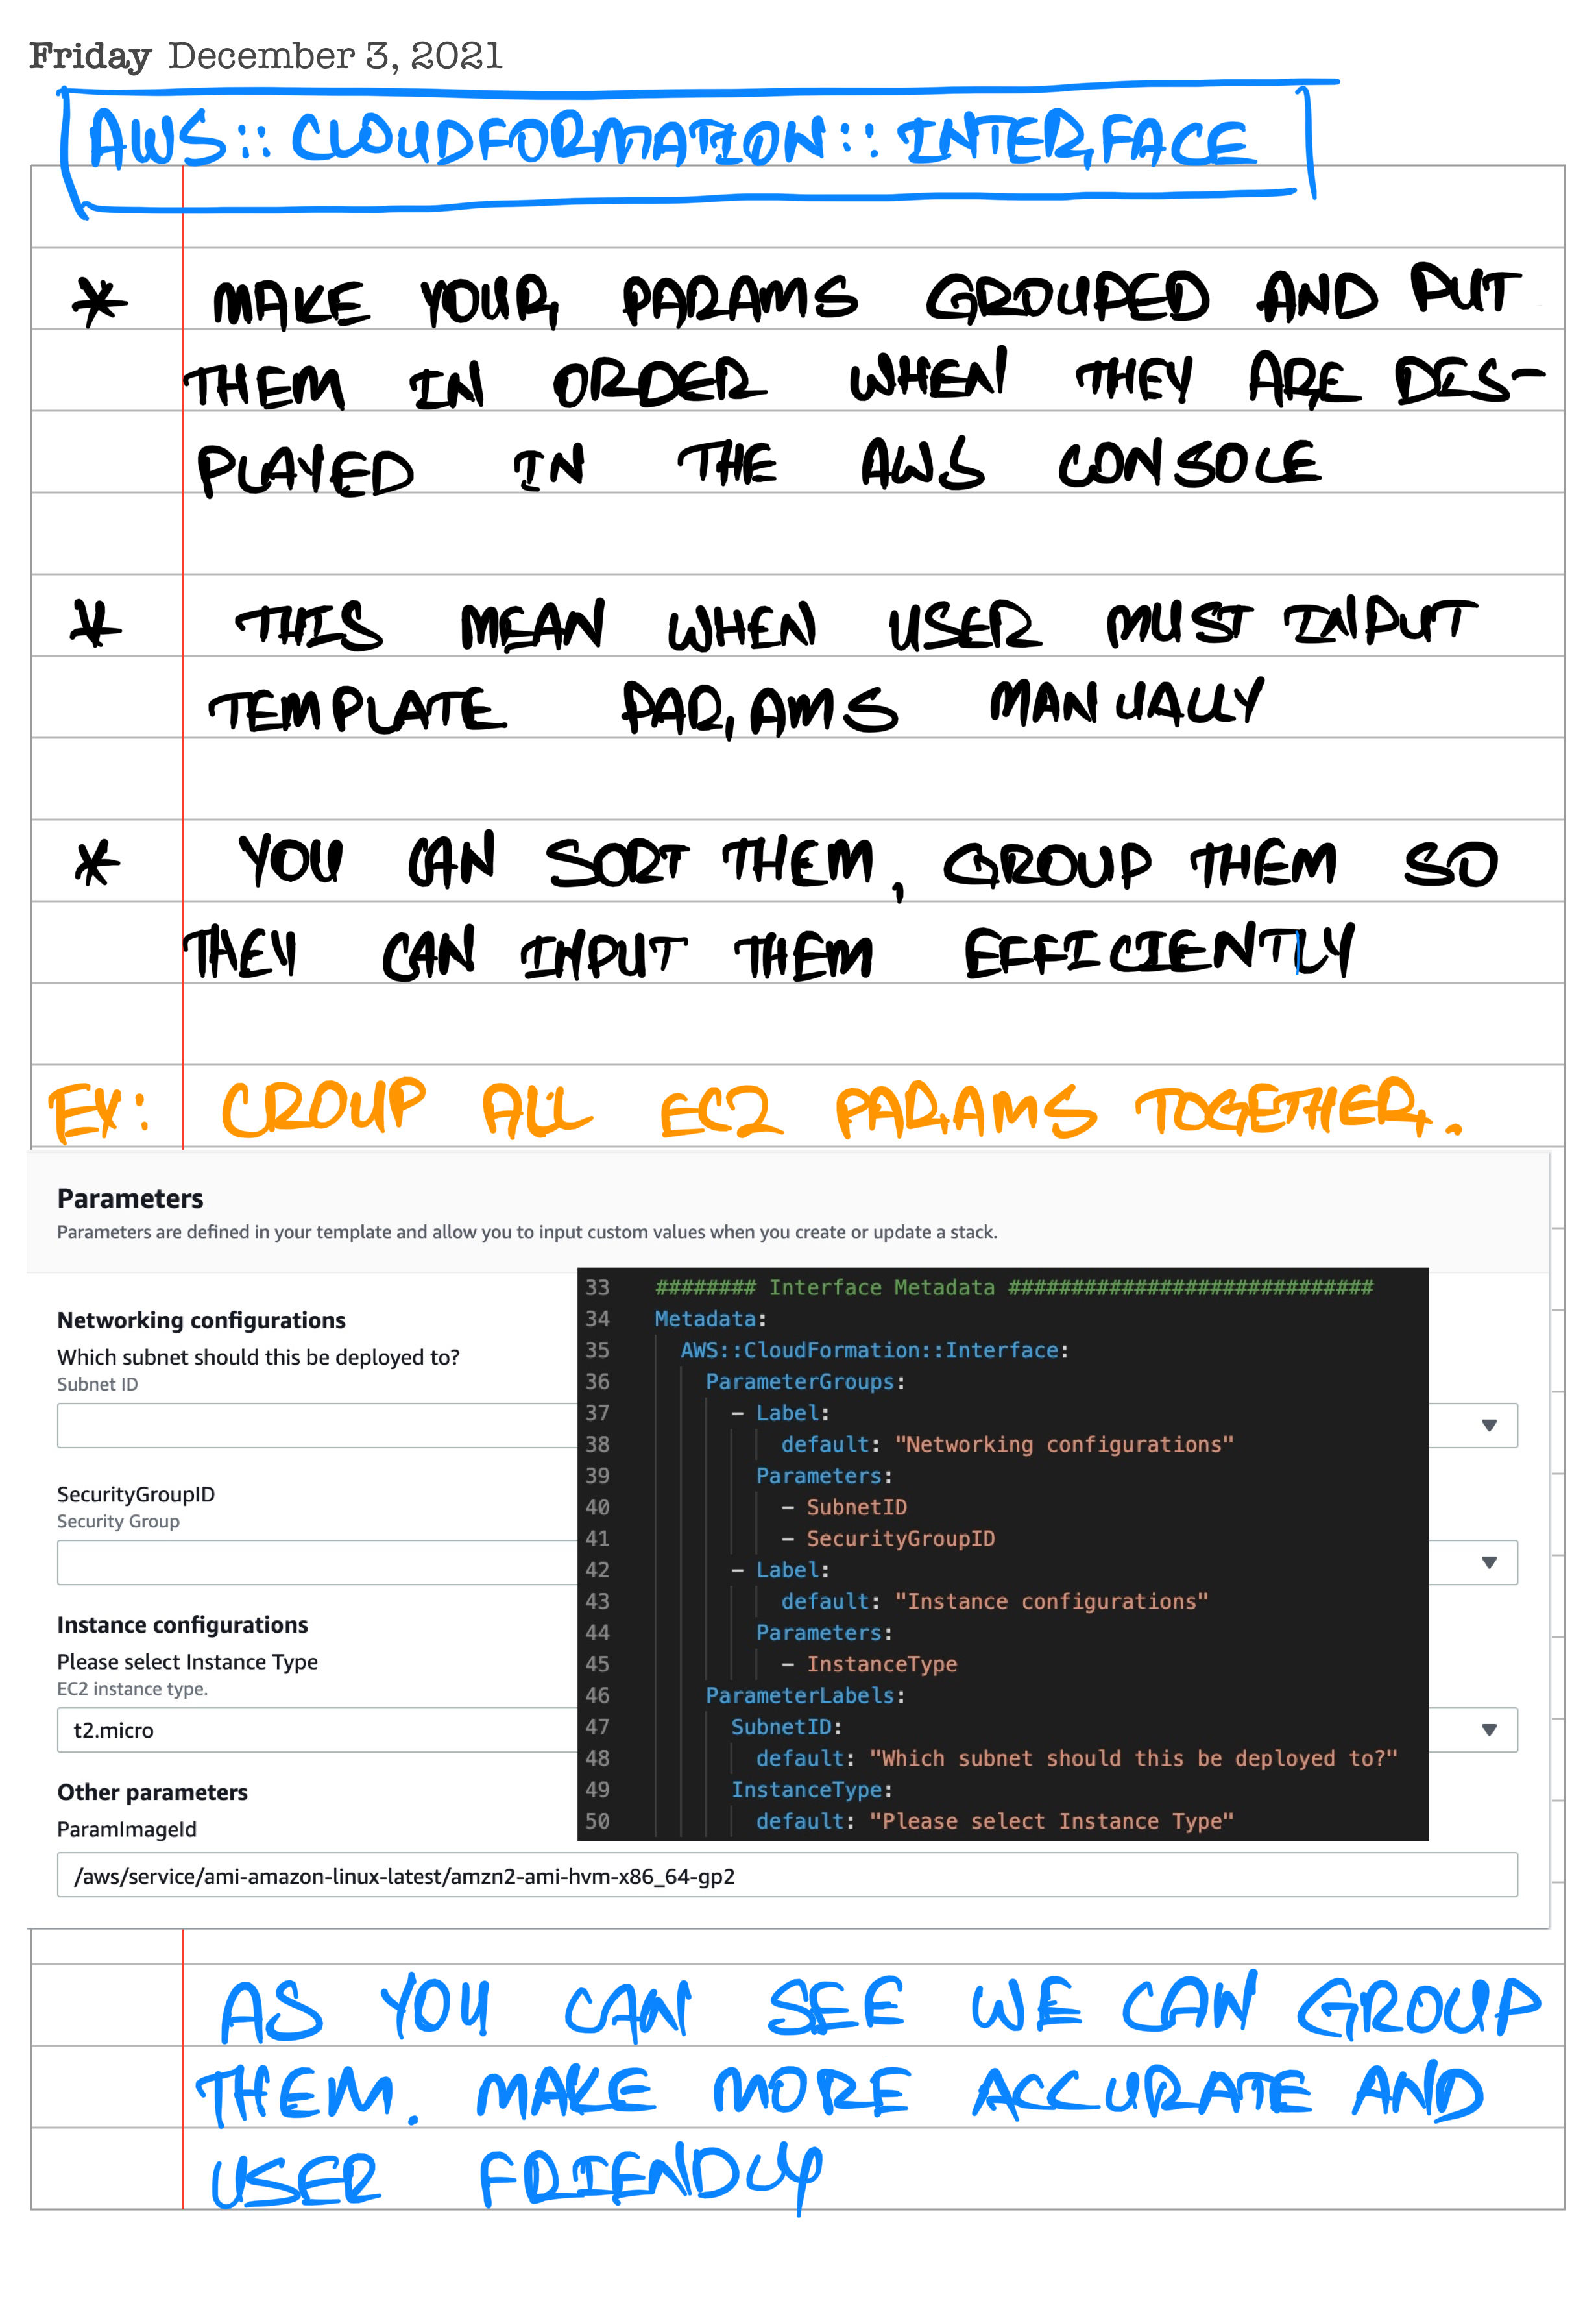 Friday December 3, 2021
AWS::CLOUDFORMATION::INTERFACE
* MAKE YOUR PARAMS GROUPED AND PUT
THEM IN ORDER WHEN THEY ARE DIS-
PLAYED IN THE AWS CONSOLE
* THIS MEAN WHEN USER MUST INPUT
TEMPLATE PARAMS MANUALLY
* YOU CAN SORT THEM, GROUP THEM SO
THEY CAN INPUT THEM EFFICIENTLY
EX: GROUP ALL EC2 PARAMS TOGETHER.
Parameters
Parameters are defined in your template and allow you to input custom values when you create or update a stack.
Networking configurations
Which subnet should this be deployed to?
Subnet ID
SecurityGroupID
Security Group
Instance configurations
Please select Instance Type
EC2 instance type.
t2.micro
Other parameters
ParamImageId
/aws/service/ami-amazon-linux-latest/amzn2-ami-hvm-x86_64-gp2
33 ######## Interface Metadata #############################
34 Metadata:
35 AWS::CloudFormation::Interface:
36 ParameterGroups:
37 - Label:
38 default: "Networking configurations"
39 Parameters:
40 - SubnetID
41 - SecurityGroupID
42 - Label:
43 default: "Instance configurations"
44 Parameters:
45 - InstanceType
46 ParameterLabels:
47 SubnetID:
48 default: "Which subnet should this be deployed to?"
49 InstanceType:
50 default: "Please select Instance Type"
AS YOU CAN SEE WE CAN GROUP
THEM. MAKE MORE ACCURATE AND
USER FRIENDLY